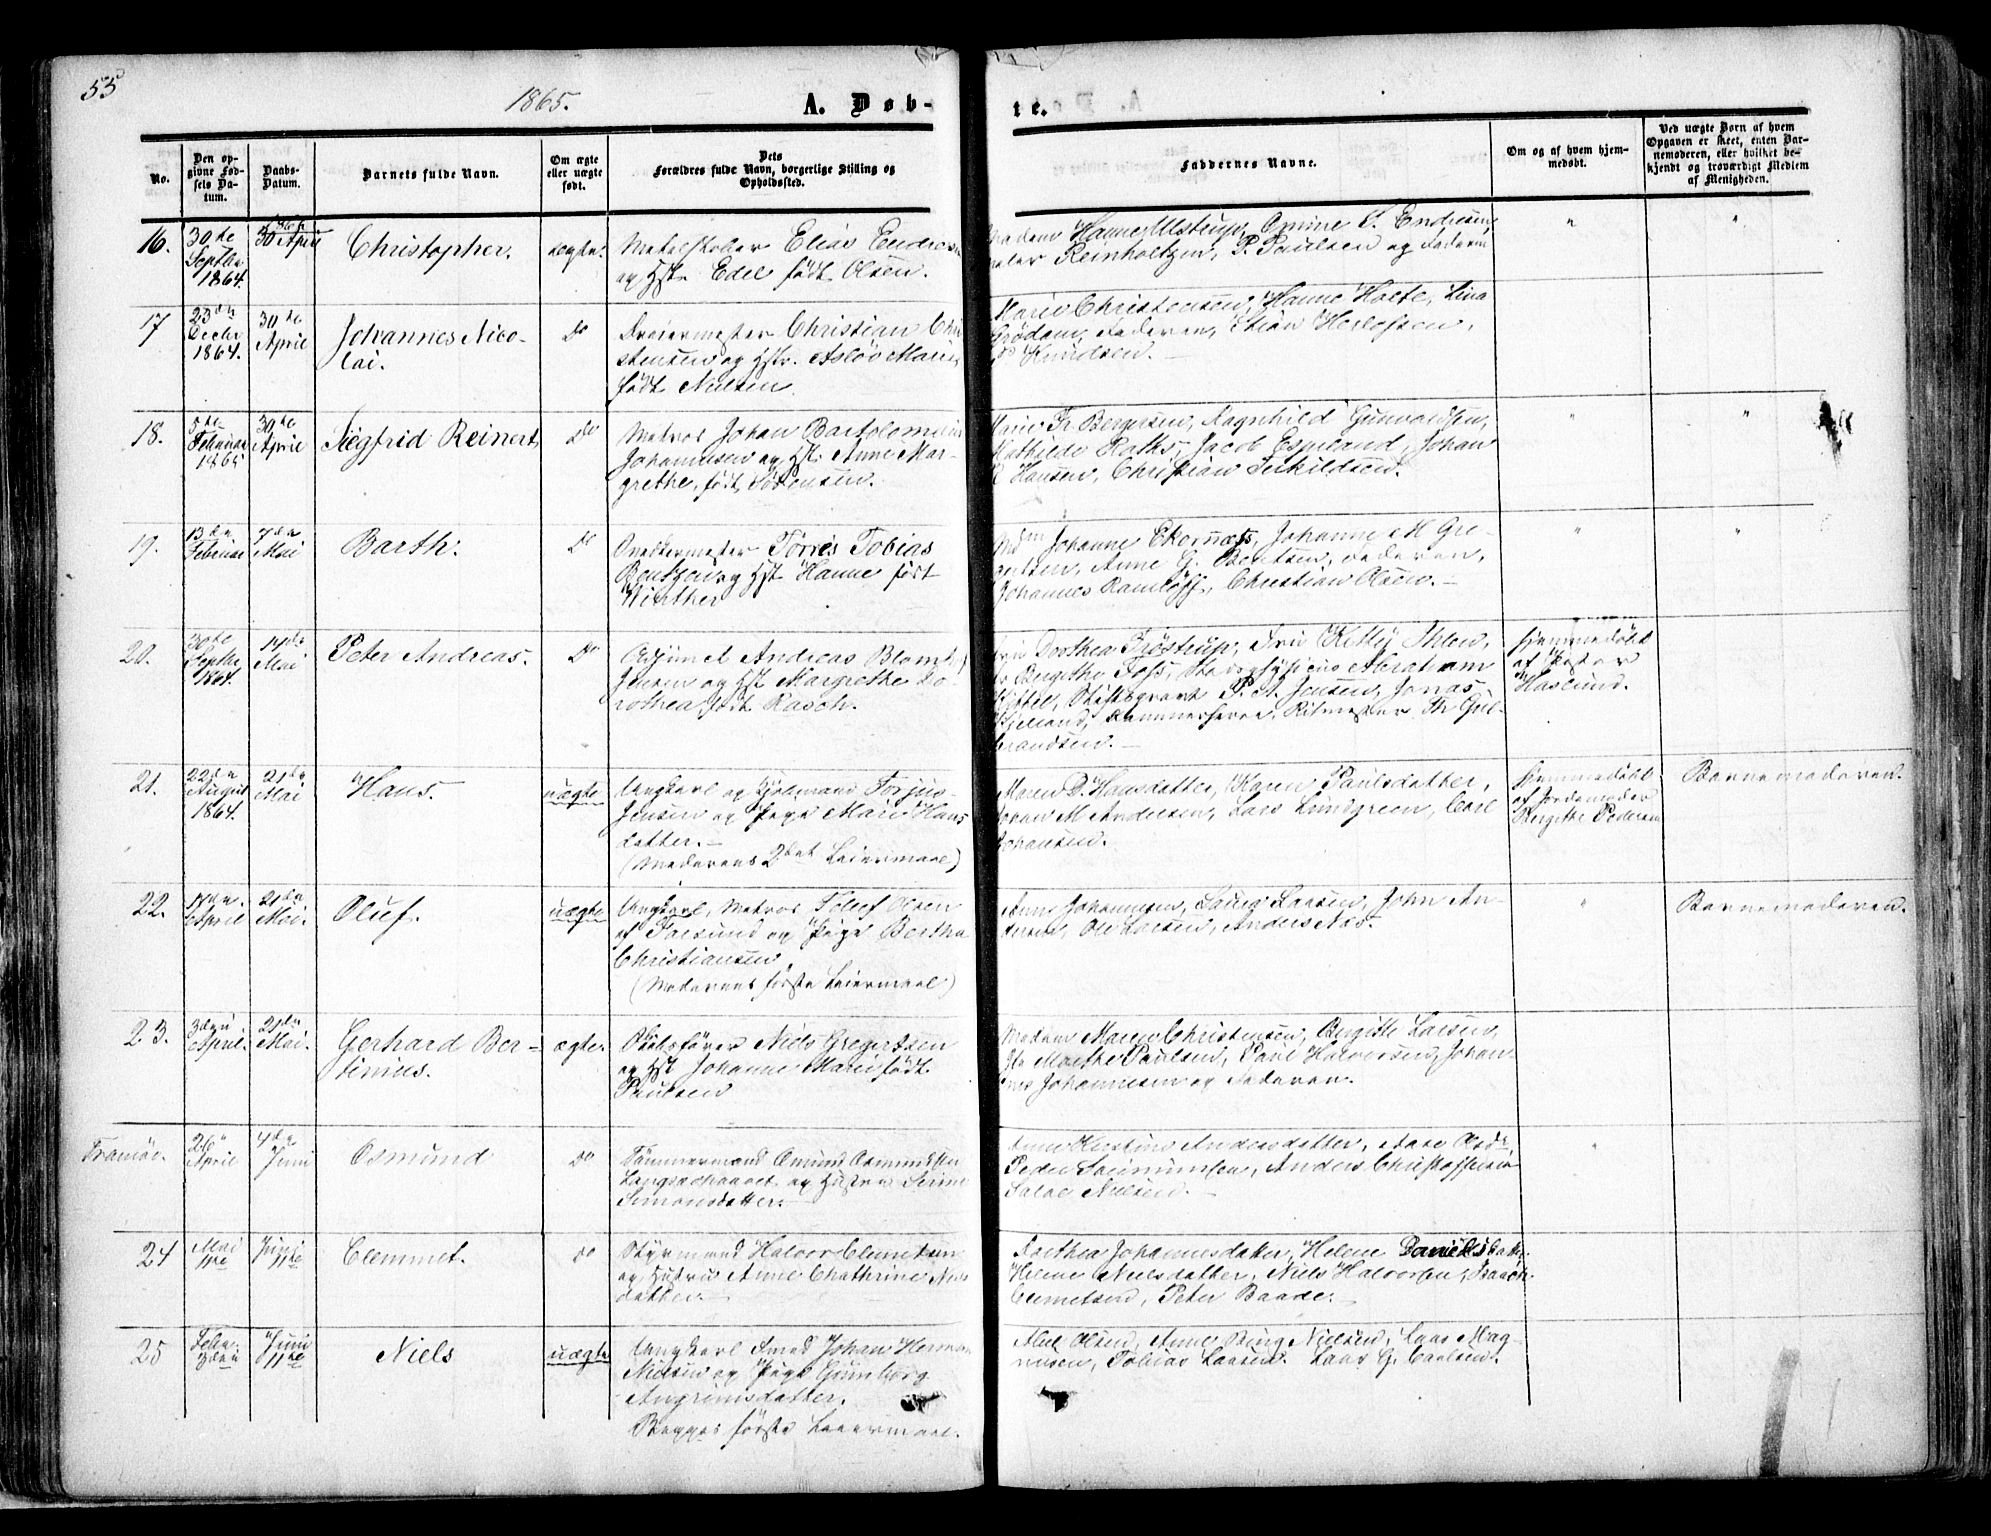 55
1865.
A. Døb-
te.
No.
Den op-
givne Fød-
sels Da-
tum.
Daabs-
Datum.
Barnets fulde Navn.
Om ægte
eller uægte
født.
Dets
Forældres fulde Navn, borgerlige Stilling og
Opholdssted.
Faddernes Navne.
Om og af hvem hjem-
medøbt.
Ved uægte Born af hvem
Opgaven er skeet, enten Bar-
nemoderen, eller hvilket be-
kjendt og troværdigt Medlem
af Menigheden.
16.
30te
Septbr
1864.
30 April
Christopher.
ægte.
Elias Endresen
og Hst. Edel født Olsen.
Madam Hanne Ulstrup, Amine S. Endresen,
Reinholtzen, P. Paulsen og Faderen
"
"
17
23de
Decbr
1864.
30te
April
Johannes Nico-
lai.
Do
Dreiermester Christian Chri
stensen og Hst. Asløv Marie
født Nielsen
Marie Christensen, Hanne Holte, Lina
Grødem, Faderen, Herlofsen,
Knudsen.
18.
5te
Februar
1865
30te
April
Siegfrid Reinert
Do
Matros Johan Bartolomeus
Johannesen og Hst. Anne Mar-
grethe, født Sørensen.
Marie Fr Bergersen, Ragnhild Gunvaldsen,
Mathilde Roths, Jacob Espeland, Johan
Hansen, Christian Terkildsen.
"
"
19.
13de
Februar
7de
Mai
Barth.
Do
Torres Tobias
Bentzen og Hst Hanne født
Winther
Mdm Johanne Ekornæss, Johanne M Gre-
gersen, Anne G. Bentsen, Faderen,
Johannes Ramløff, Christian Olsen.
"
"
20.
30te
Septbr
1864.
14de
Mai
Peter Andreas.
Do
Andreas Blom
Jensen og Hst Margrethe Do-
rothea, født Rasch.
Dorthea Trøstrup, Frø Kitty Thlen,
Birgithe Foss, Stadsphysicus Abraham
P. A. Jensen, Jonas
Kielland, Kammerherre, Ritmester Th Gul-
brandsen.
Hjemmedøbt
af Pastor
Haslund.
21.
22de
August
1864.
21de
Mai
Hans.
uægte
Ungkarl og Sjømand Torjus
Jensen og Pige Mari Hans
datter.
(Moderens 2det Leiermaal)
Maren D. Hansdatter, Karen Paulsdatter,
M Andersen, Lars Lundgreen, Carl
Johansen.
Hjemmedøbt
af Jordemoder
Birgithe Pedersen
Barnemoderen.
22.
April
21de
Mai.
Oluf.
uægte
Ungkarl, Matros Tellef Olsen
af Farsund og Pige Bertha
Christiansen
(Moderens første Leiermaal)
Anne Johannesen, Larsen, John An-
dersen, Ole Larsen, Anders Nos.
"
Barnemoderen.
23.
3den
April.
21de
Mai.
Gerhard Ber-
tinius.
ægte.
Niels Gregertsen
og Hst Johanne Marie født
Paulsen
Madam Maren Christensen, Birgitte Larsen,
Marthe Paulsen, Halvorsen, Johan
nes Johannesen og Faderen.
Tromøe.
26
April
4de
Juni
Osmund
Do
Tømmermand Omund Osmundsen
og Hustru Serine
Simonsdatter.
Anne Kirstine Andersdatter,
Peder Salmunsen, Anders Christoffersen
Nielsen.
"
24
Mai
1ste
Juni
11te
Clemmet.
do
Styrmand Halvor Clemetsen
og Hustru Anne Chathrine Niels
datter.
Dorthea Johannesdatter, Helene Danielsdatter
Helene Nielsdatter, Niels Halvorsen, Isaach
Clemetsen, Peter Baade.
25
Febr
Juni
11te
Niels
uægte
Ungkarl Smed Johan Herman
Nielsen og Pige Gunborg
Angrimsdatter.
Begges første Leiermaal.
Olsen, Anne Berg Nielsen, Lars Mag-
nusen, Tobias Larsen. Lars G. Carlsen.